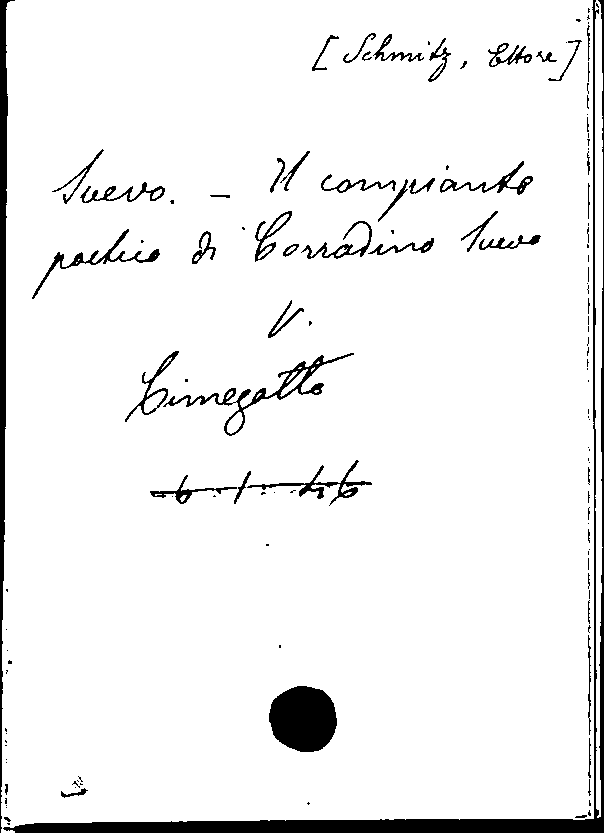 [Schmitz, Ettore]
Svevo. - Il compianto
poetico di Corradino Svevo
V.
Cimegotto
6.1.46